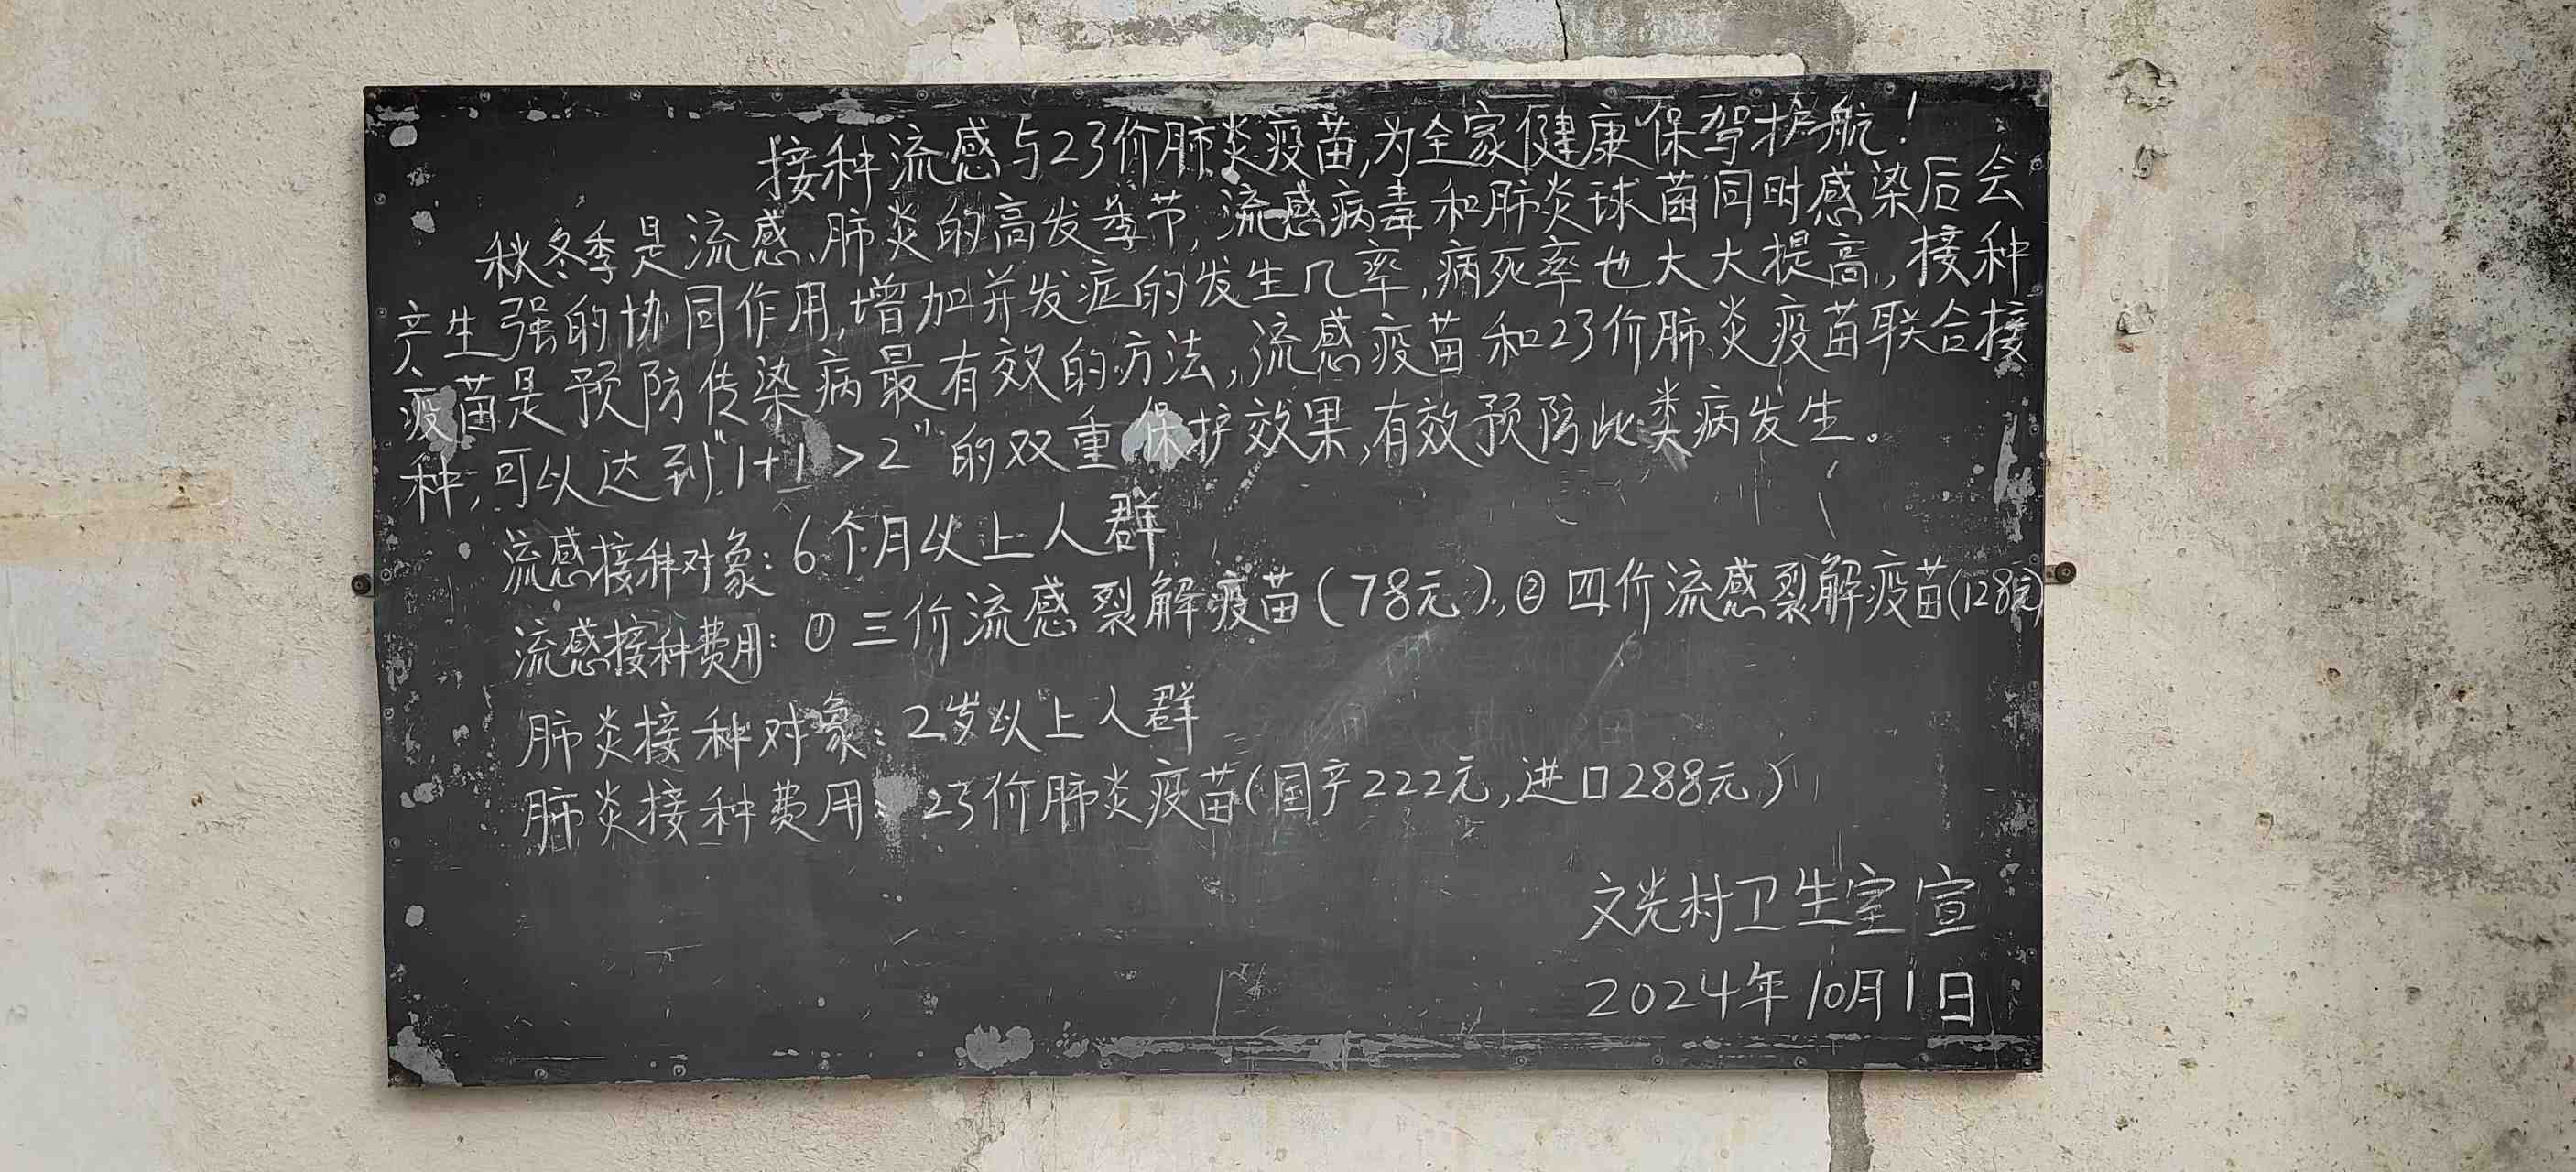 接种流感与23价肺炎疫苗,为全家健康保驾护航!
秋冬季是流感、肺炎的高发季节,流感病毒和肺炎球菌同时感染后会
产生强的协同作用,增加并发症的发生几率,病死率也大大提高,接种
疫苗是预防传染病最有效的方法,流感疫苗和23价肺炎疫苗联合接
种,可以达到“1+1>2”的双重保护效果,有效预防此类病发生。
流感接种对象:6个月以上人群
流感接种费用:①三价流感裂解疫苗(78元),②四价流感裂解疫苗(128元)
肺炎接种对象:2岁以上人群
肺炎接种费用:23价肺炎疫苗(国产222元,进口288元)
文光村卫生室宣
2024年10月1日